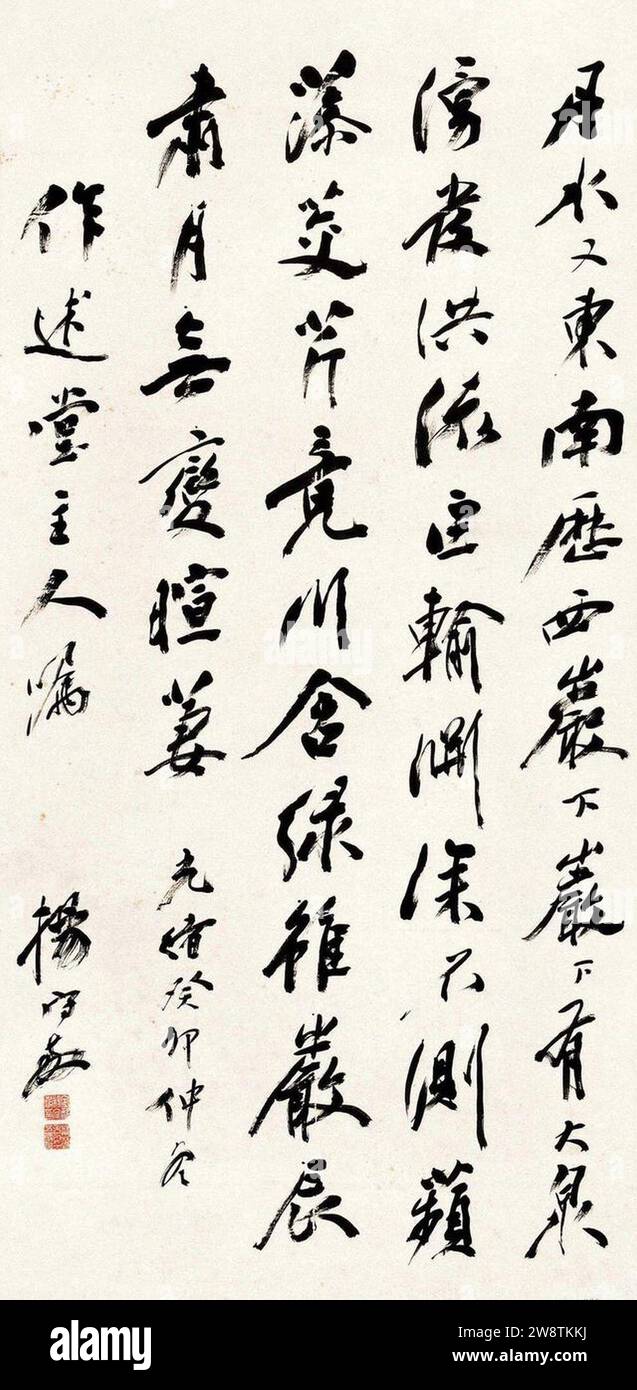 丹水又東南歷西巖下巖下有大泉
湧發洪流巨輸淵深不測蘋
藻茭芹竟川含綠雖嚴辰
肅月無變暄萋 光緒癸卯仲冬
作述堂主人囑 楊守敬
alamy
Image ID: 2W8TKKJ
www.alamy.com